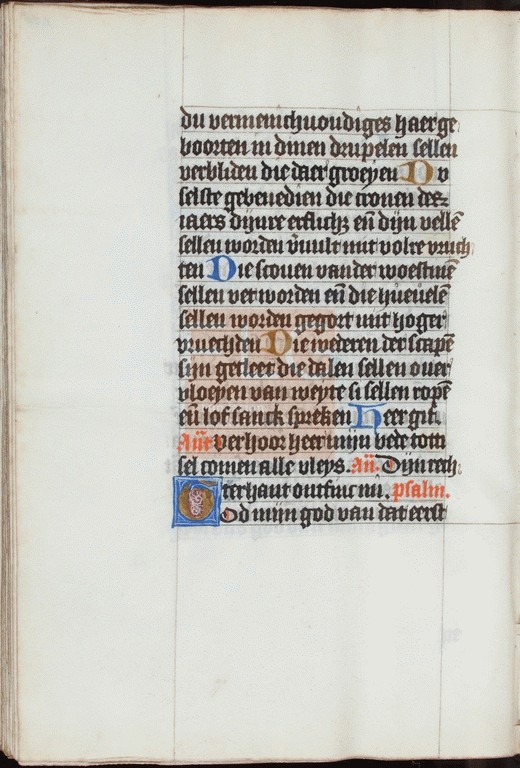 du vermenichuoudiges haer ge
boorten in dinen drupelen sellen
verbliden die daer groeyen Du
selste gebenedien die cronen des
iaers dijnre erflich; eñ dijn vellē
sellen worden v̄uult mit volre vruch
ten Die scouen vander woestinē
sellen vet worden eñ die huеuelē
sellen worden gegort mit hoger
vruechden Die wederen der scapē
sijn gecleet die dalen sellen ouer
vloeyen van weyte si sellen ropē
eñ lof sanck spreken Heer gif.
Añt verhoor heer mijn bede tot ti
sel comen alle vleys. añ. Dijn rech
terhant ontfinc mi. psalm.
God mijn god van dat eerst